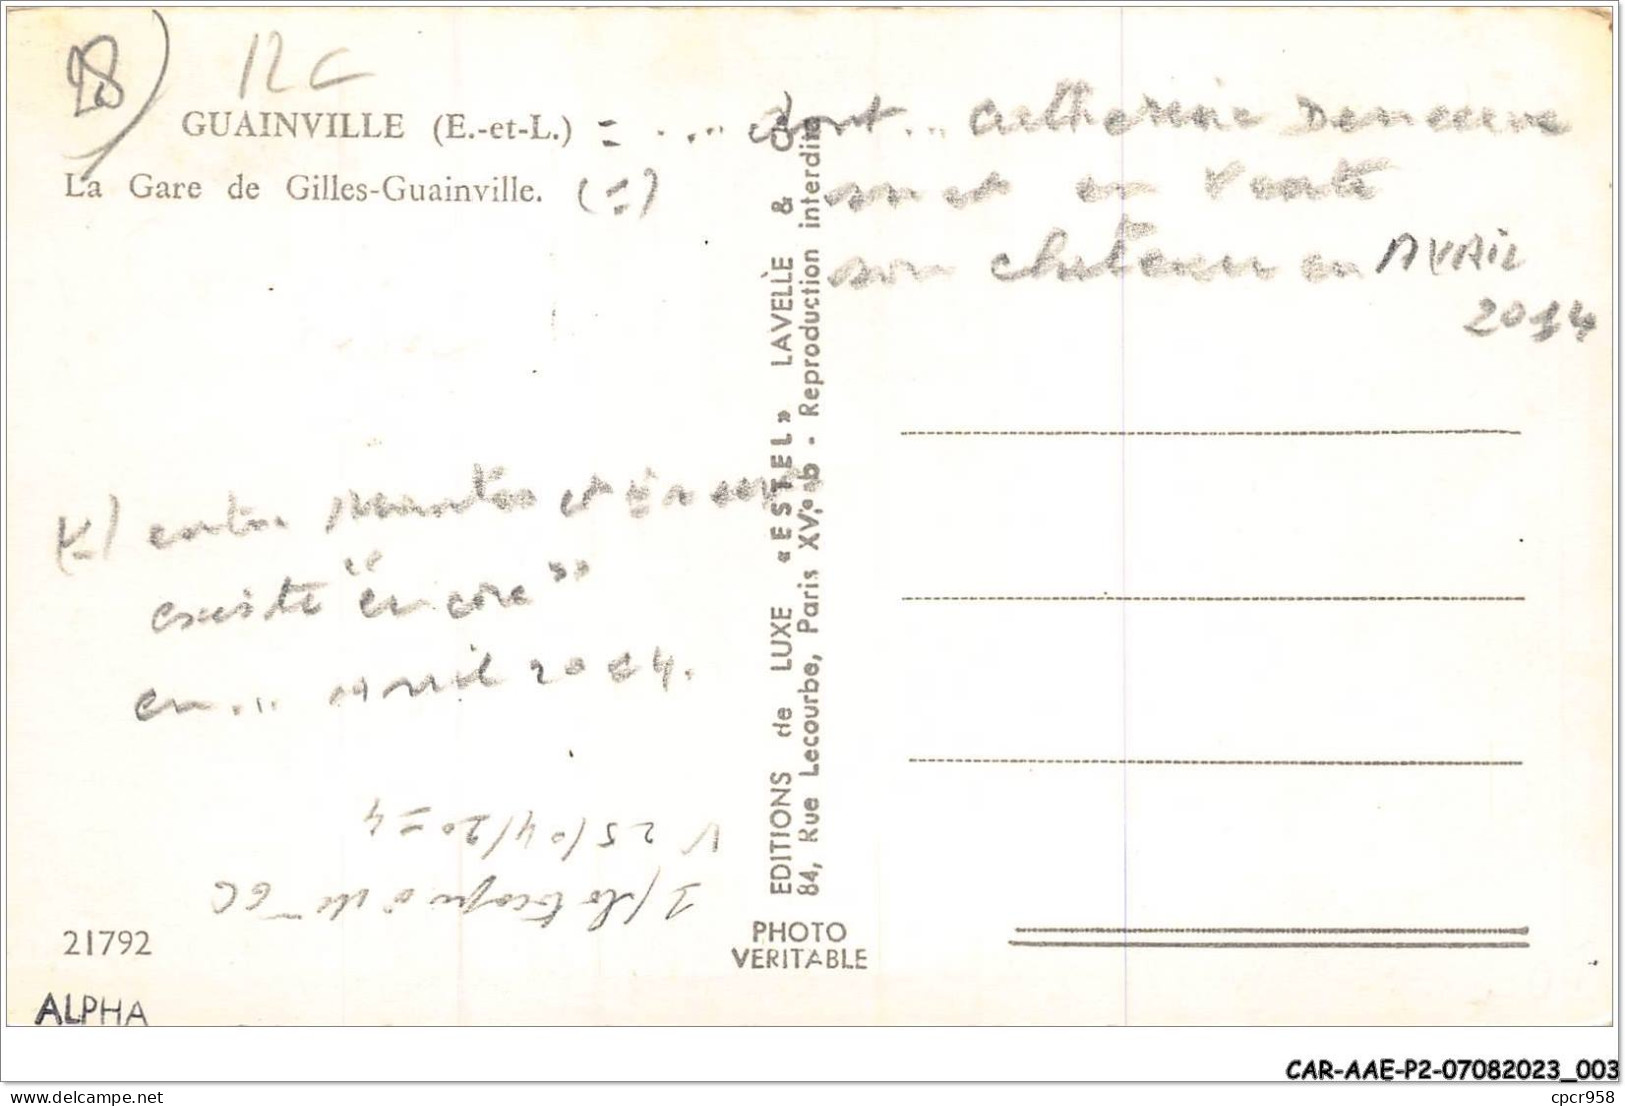 28)
GUAINVILLE (E.-et-L.) = .... dont... Catherine Deneuve
met en vente
son chateau en AVRIL
2014
La Gare de Gilles-Guainville. (=)
EDITIONS de LUXE « ESTEL » LAVELLE & Cie
84, Rue Lecourbe, Paris XV,e b - Reproduction interdite
(=) entre Mantes et Evreux
existe "encore"
en... avril 2014.
V 25/04/2014
21792
PHOTO
VERITABLE
ALPHA
CAR-AAE-P2-07082023_003
www.delcampe.net
cpcr958